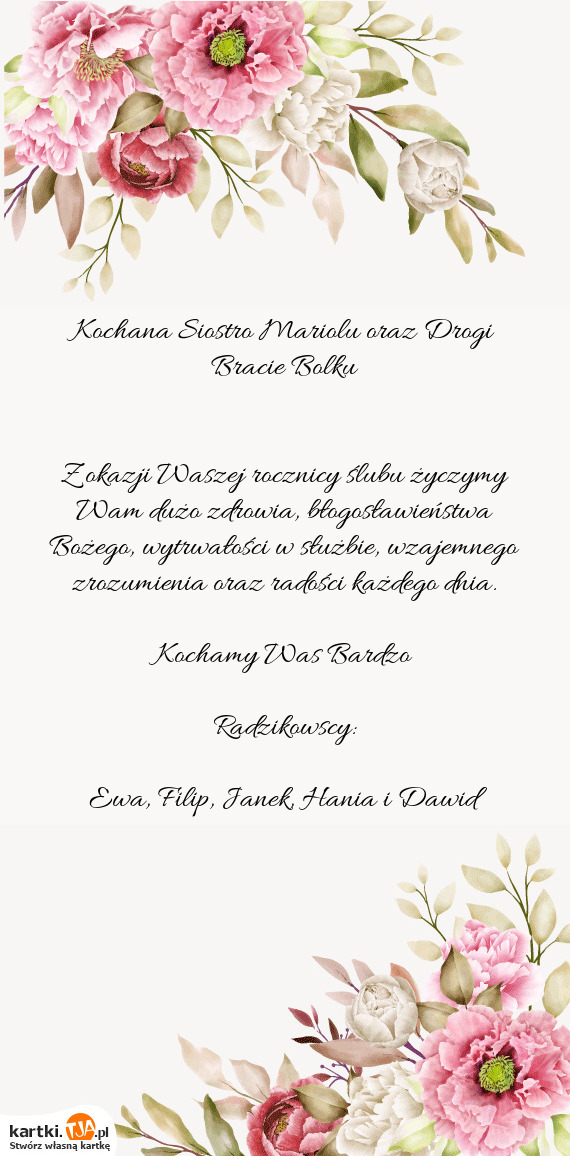 Kochana Siostro Mariolu oraz Drogi
Bracie Bolku
Z okazji Waszej rocznicy ślubu życzymy
Wam dużo zdrowia, błogosławieństwa
Bożego, wytrwałości w służbie, wzajemnego
zrozumienia oraz radości każdego dnia.
Kochamy Was Bardzo
Radzikowscy:
Ewa, Filip, Janek, Hania i Dawid
kartki.TJA.pl
Stwórz własną kartkę